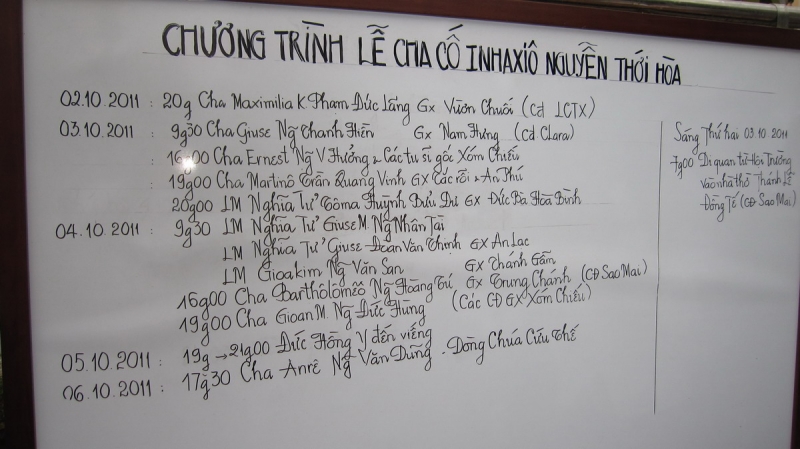 CHƯƠNG TRÌNH LỄ CHA CỐ INHAXIÔ NGUYỄN THỚI HÒA
02.10.2011 : 20g Cha Maximilia K Phạm Đức Lãng Gx Vườn Chuối (Cđ LCTX)
03.10.2011 : 9g30 Cha Giuse Ng Thanh Hiền Gx Nam Hưng (Cđ Clara)
: 16g00 Cha Ernest Ng V Hưởng & Các tu sĩ gốc Xóm Chiếu
: 19g00 Cha Martinô Trần Quang Vinh Gx Tắc rỗi + An Phú
20g00 LM Nghĩa Tử Tôma Huỳnh Bửu Dư Gx Đức Bà Hòa Bình
04.10 2011 : 9g30 LM Nghĩa Tử Giuse M. Ng Nhân Tài
LM Nghĩa Tử Giuse Đoàn Văn Thịnh Gx An Lạc
LM Gioakim Ng Văn San Gx Thánh Gẫm
16g00 Cha Barthôlômêô Ng Hoàng Tú Gx Trung Chánh (CĐ Sao Mai)
19g00 Cha Gioan M. Ng Đức Hùng (Các CĐ Gx Xóm Chiếu)
05.10.2011 : 19g → 21g00 Đức Hồng Y đến viếng
06.10.2011 : 17g30 Cha Anrê Ng Văn Dũng - Dòng Chúa Cứu Thế
Sáng Thứ hai 03 10 2011
7g00 Di quan từ Hội Trường
vào nhà thờ Thánh Lễ
Đồng Tế (CĐ Sao Mai)